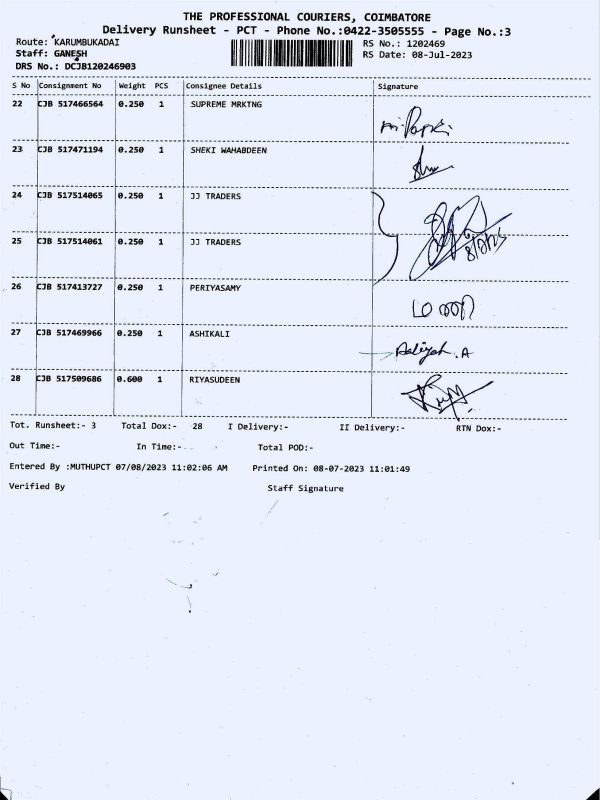 THE PROFESSIONAL COURIERS, COIMBATORE
Delivery Runsheet - PCT - Phone No.:0422-3505555 - Page No.:3
Route: KARUMBUKADAI RS No.: 1202469
Staff: GANESH RS Date: 08-Jul-2023
DRS No.: DCJB120246903
S No Consignment No Weight PCS Consignee Details Signature
22 CJB 517466564 0.250 1 SUPREME MRKTNG
23 CJB 517471194 0.250 1 SHEKI WAHABDEEN
24 CJB 517514065 0.250 1 JJ TRADERS
25 CJB 517514061 0.250 1 JJ TRADERS
26 CJB 517413727 0.250 1 PERIYASAMY
27 CJB 517469966 0.250 1 ASHIKALI Aaliyah.A
28 CJB 517509686 0.600 1 RIYASUDEEN
Tot. Runsheet:- 3 Total Dox:- 28 I Delivery:- II Delivery:- RTN Dox:-
Out Time:- In Time:- Total POD:-
Entered By :MUTHUPCT 07/08/2023 11:02:06 AM Printed On: 08-07-2023 11:01:49
Verified By Staff Signature